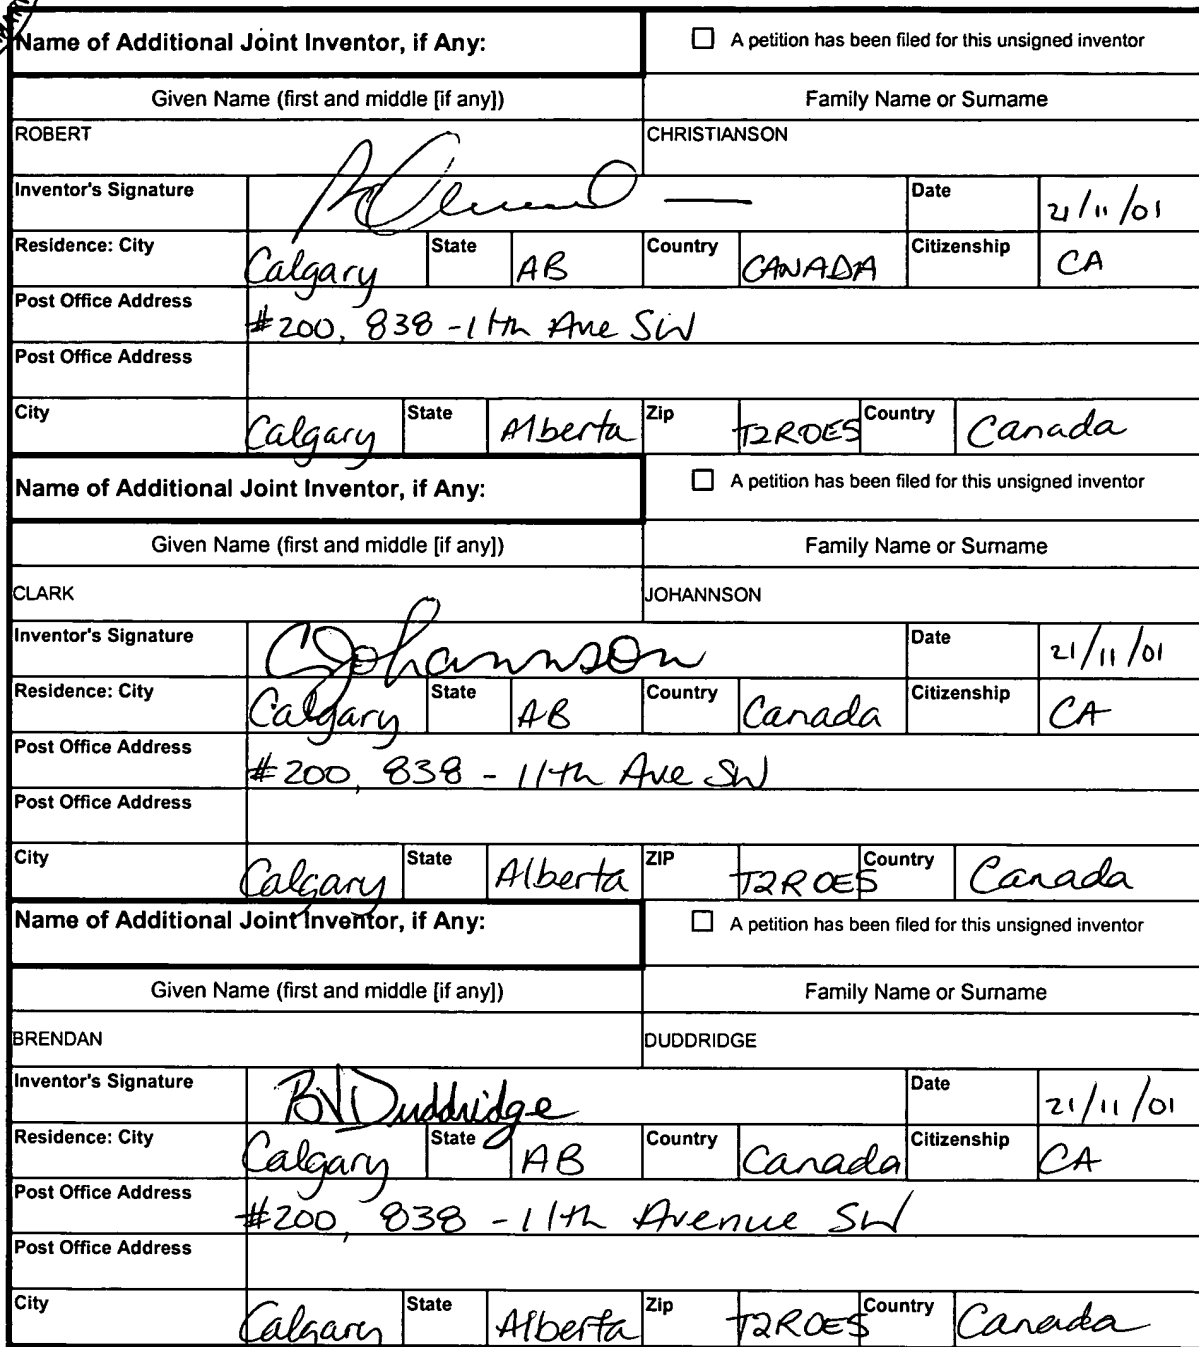 Name of Additional Joint Inventor, if Any: ☐ A petition has been filed for this unsigned inventor
Given Name (first and middle [if any]) Family Name or Surname
ROBERT CHRISTIANSON
Inventor's Signature Date 21/11/01
Residence: City Calgary State AB Country CANADA Citizenship CA
Post Office Address #200, 838 - 11th Ave SW
Post Office Address
City Calgary State Alberta Zip T2R0E5 Country Canada
Name of Additional Joint Inventor, if Any: ☐ A petition has been filed for this unsigned inventor
Given Name (first and middle [if any]) Family Name or Surname
CLARK JOHANNSON
Inventor's Signature CJohannson Date 21/11/01
Residence: City Calgary State AB Country Canada Citizenship CA
Post Office Address #200, 838 - 11th Ave SW
Post Office Address
City Calgary State Alberta ZIP T2R 0E5 Country Canada
Name of Additional Joint Inventor, if Any: ☐ A petition has been filed for this unsigned inventor
Given Name (first and middle [if any]) Family Name or Surname
BRENDAN DUDDRIDGE
Inventor's Signature Duddridge Date 21/11/01
Residence: City Calgary State AB Country Canada Citizenship CA
Post Office Address #200, 838 - 11th Avenue SW
Post Office Address
City Calgary State Alberta Zip T2R0E5 Country Canada